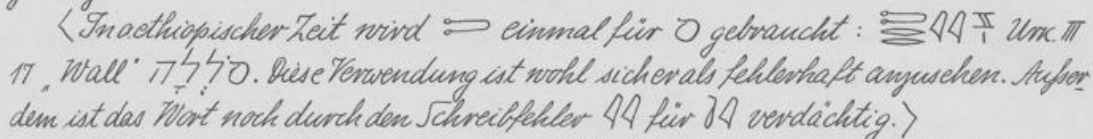 〈In aethiopischer Zeit wird einmal für gebraucht : Urk. III
17 „Wall“ סֹלְלָה. Diese Verwendung ist wohl sicher als fehlerhaft anzusehen. Außer
dem ist das Wort noch durch den Schreibfehler 𓇋𓇋 für verdächtig.〉